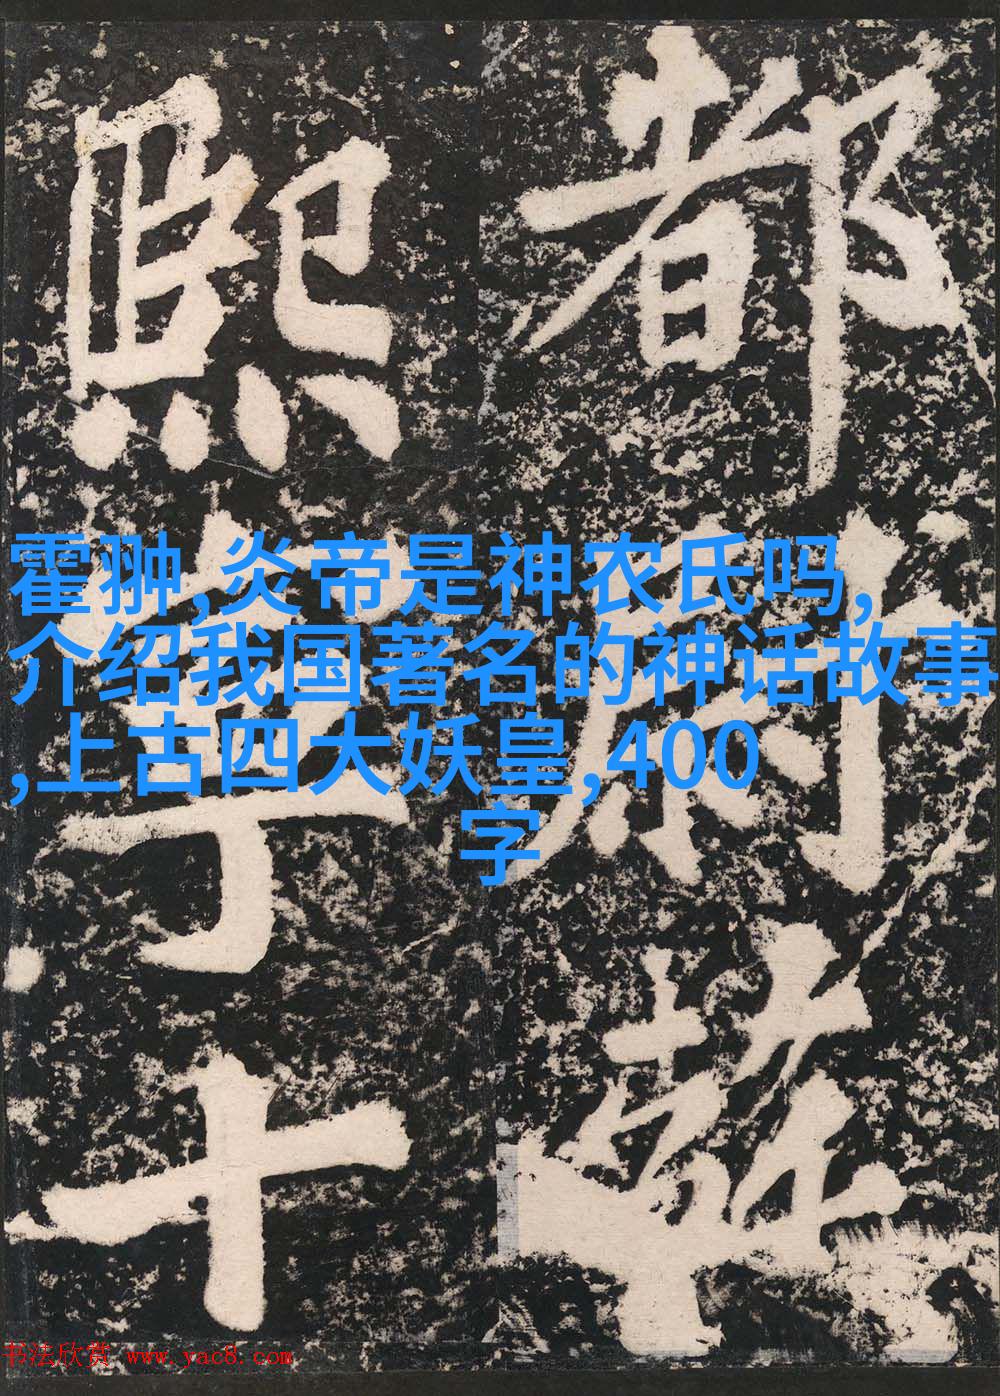 都府兼
熙寧十
霍翀,炎帝是神农氏吗,
介绍我国著名的神话故事
,上古四大妖皇,400
字
书法欣赏 www.yac8.com